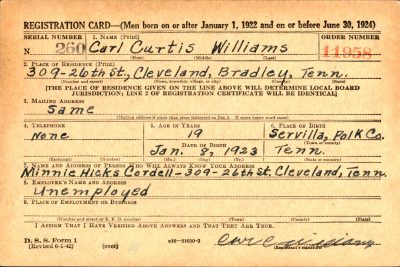 REGISTRATION CARD—(Men born on or after January 1, 1922 and on or before June 30, 1924)
SERIAL NUMBER 1. NAME (Print) ORDER NUMBER
N 260 Carl Curtis Williams 11958
(First) (Middle) (Last)
2. PLACE OF RESIDENCE (Print)
309-26th St., Cleveland, Bradley, Tenn.
(Number and street) (Town, township, village, or city) (County) (State)
[THE PLACE OF RESIDENCE GIVEN ON THE LINE ABOVE WILL DETERMINE LOCAL BOARD
JURISDICTION; LINE 2 OF REGISTRATION CERTIFICATE WILL BE IDENTICAL]
3. MAILING ADDRESS
Same
(Mailing address if other than place indicated on line 2. If same insert word same)
4. TELEPHONE 5. AGE IN YEARS 6. PLACE OF BIRTH
None 19 Servilla, Polk Co.
DATE OF BIRTH (Town or county)
Jan. 8, 1923 Tenn.
(Exchange) (Number) (Mo.) (Day) (Yr.) (State or country)
7. NAME AND ADDRESS OF PERSON WHO WILL ALWAYS KNOW YOUR ADDRESS
Minnie Hicks Cordell-309-26th St, Cleveland, Tenn.
8. EMPLOYER'S NAME AND ADDRESS
Unemployed
9. PLACE OF EMPLOYMENT OR BUSINESS
(Number and street or R. F. D. number) (Town) (County) (State)
I AFFIRM THAT I HAVE VERIFIED ABOVE ANSWERS AND THAT THEY ARE TRUE.
D. S. S. Form 1
(Revised 6-1-42) (over) (Registrant's signature)